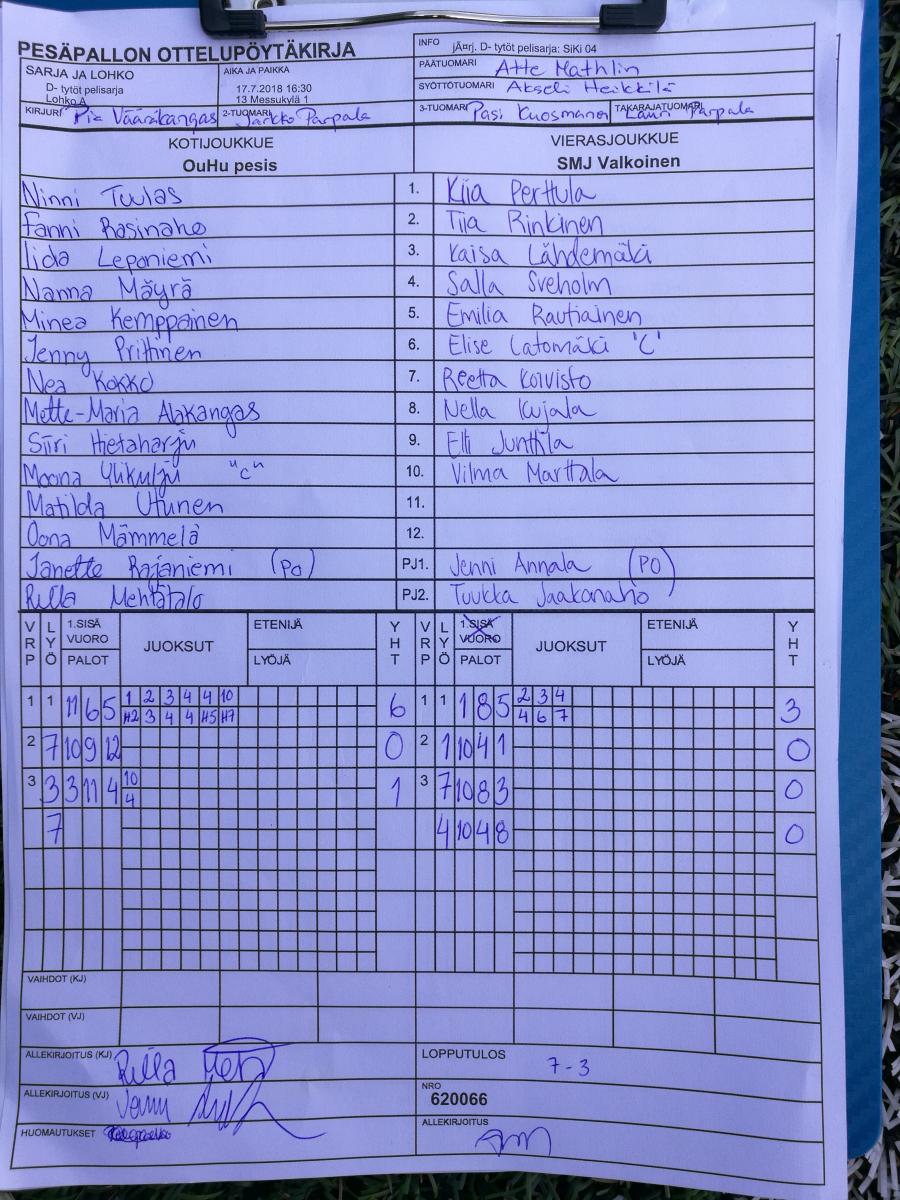 PESÄPALLON OTTELUPÖYTÄKIRJA
INFO jÃ¤rj. D- tytöt pelisarja: SiKi 04
SARJA JA LOHKO
D- tytöt pelisarja
Lohko A
AIKA JA PAIKKA
17.7.2018 16:30
13 Messukylä 1
PÄÄTUOMARI Atte Mathlin
SYÖTTÖTUOMARI Akseli Heikkilä
KIRJURI Pia Vääräkangas 2-TUOMARI Jarkko Parpala 3-TUOMARI Pasi Kuosmanen TAKARAJATUOMARI Lauri Parpala
KOTIJOUKKUE VIERASJOUKKUE
OuHu pesis SMJ Valkoinen
Ninni Tuulas 1. Kiia Perttula
Fanni Rasinaho 2. Tiia Rinkinen
Iida Leponiemi 3. Kaisa Lähdemäki
Nanna Mäyrä 4. Salla Sveholm
Minea Kemppainen 5. Emilia Rautiainen
Jenny Prittinen 6. Elise Latomäki 'C'
Nea Kokko 7. Reetta Koivisto
Mette-Maria Alakangas 8. Nella Kujala
Siiri Hietaharju 9. Elli Junttila
Moona Ylikulju "C" 10. Vilma Marttala
Matilda Utunen 11.
Oona Mämmelä 12.
Janette Rajaniemi (PO) PJ1. Jenni Annala (PO)
Riila Mehtätalo PJ2. Tuukka Jaakanaho
VRP LYÖ 1.SISÄ VUORO PALOT JUOKSUT ETENIJÄ LYÖJÄ YHT VRP LYÖ 1.SISÄ VUORO PALOT JUOKSUT ETENIJÄ LYÖJÄ YHT
1 1 11 6 5 1 2 3 4 4 10 6 1 1 1 8 5 2 3 4 3
H2 3 4 4 H5 H7 4 6 7
2 7 10 9 12 0 2 1 10 4 1 0
3 3 3 11 4 10 1 3 7 10 8 3 0
4
7 4 10 4 8 0
VAIHDOT (KJ)
VAIHDOT (VJ)
ALLEKIRJOITUS (KJ) Riila LOPPUTULOS 7-3
ALLEKIRJOITUS (VJ) Jenni NRO 620066
HUOMAUTUKSET ALLEKIRJOITUS